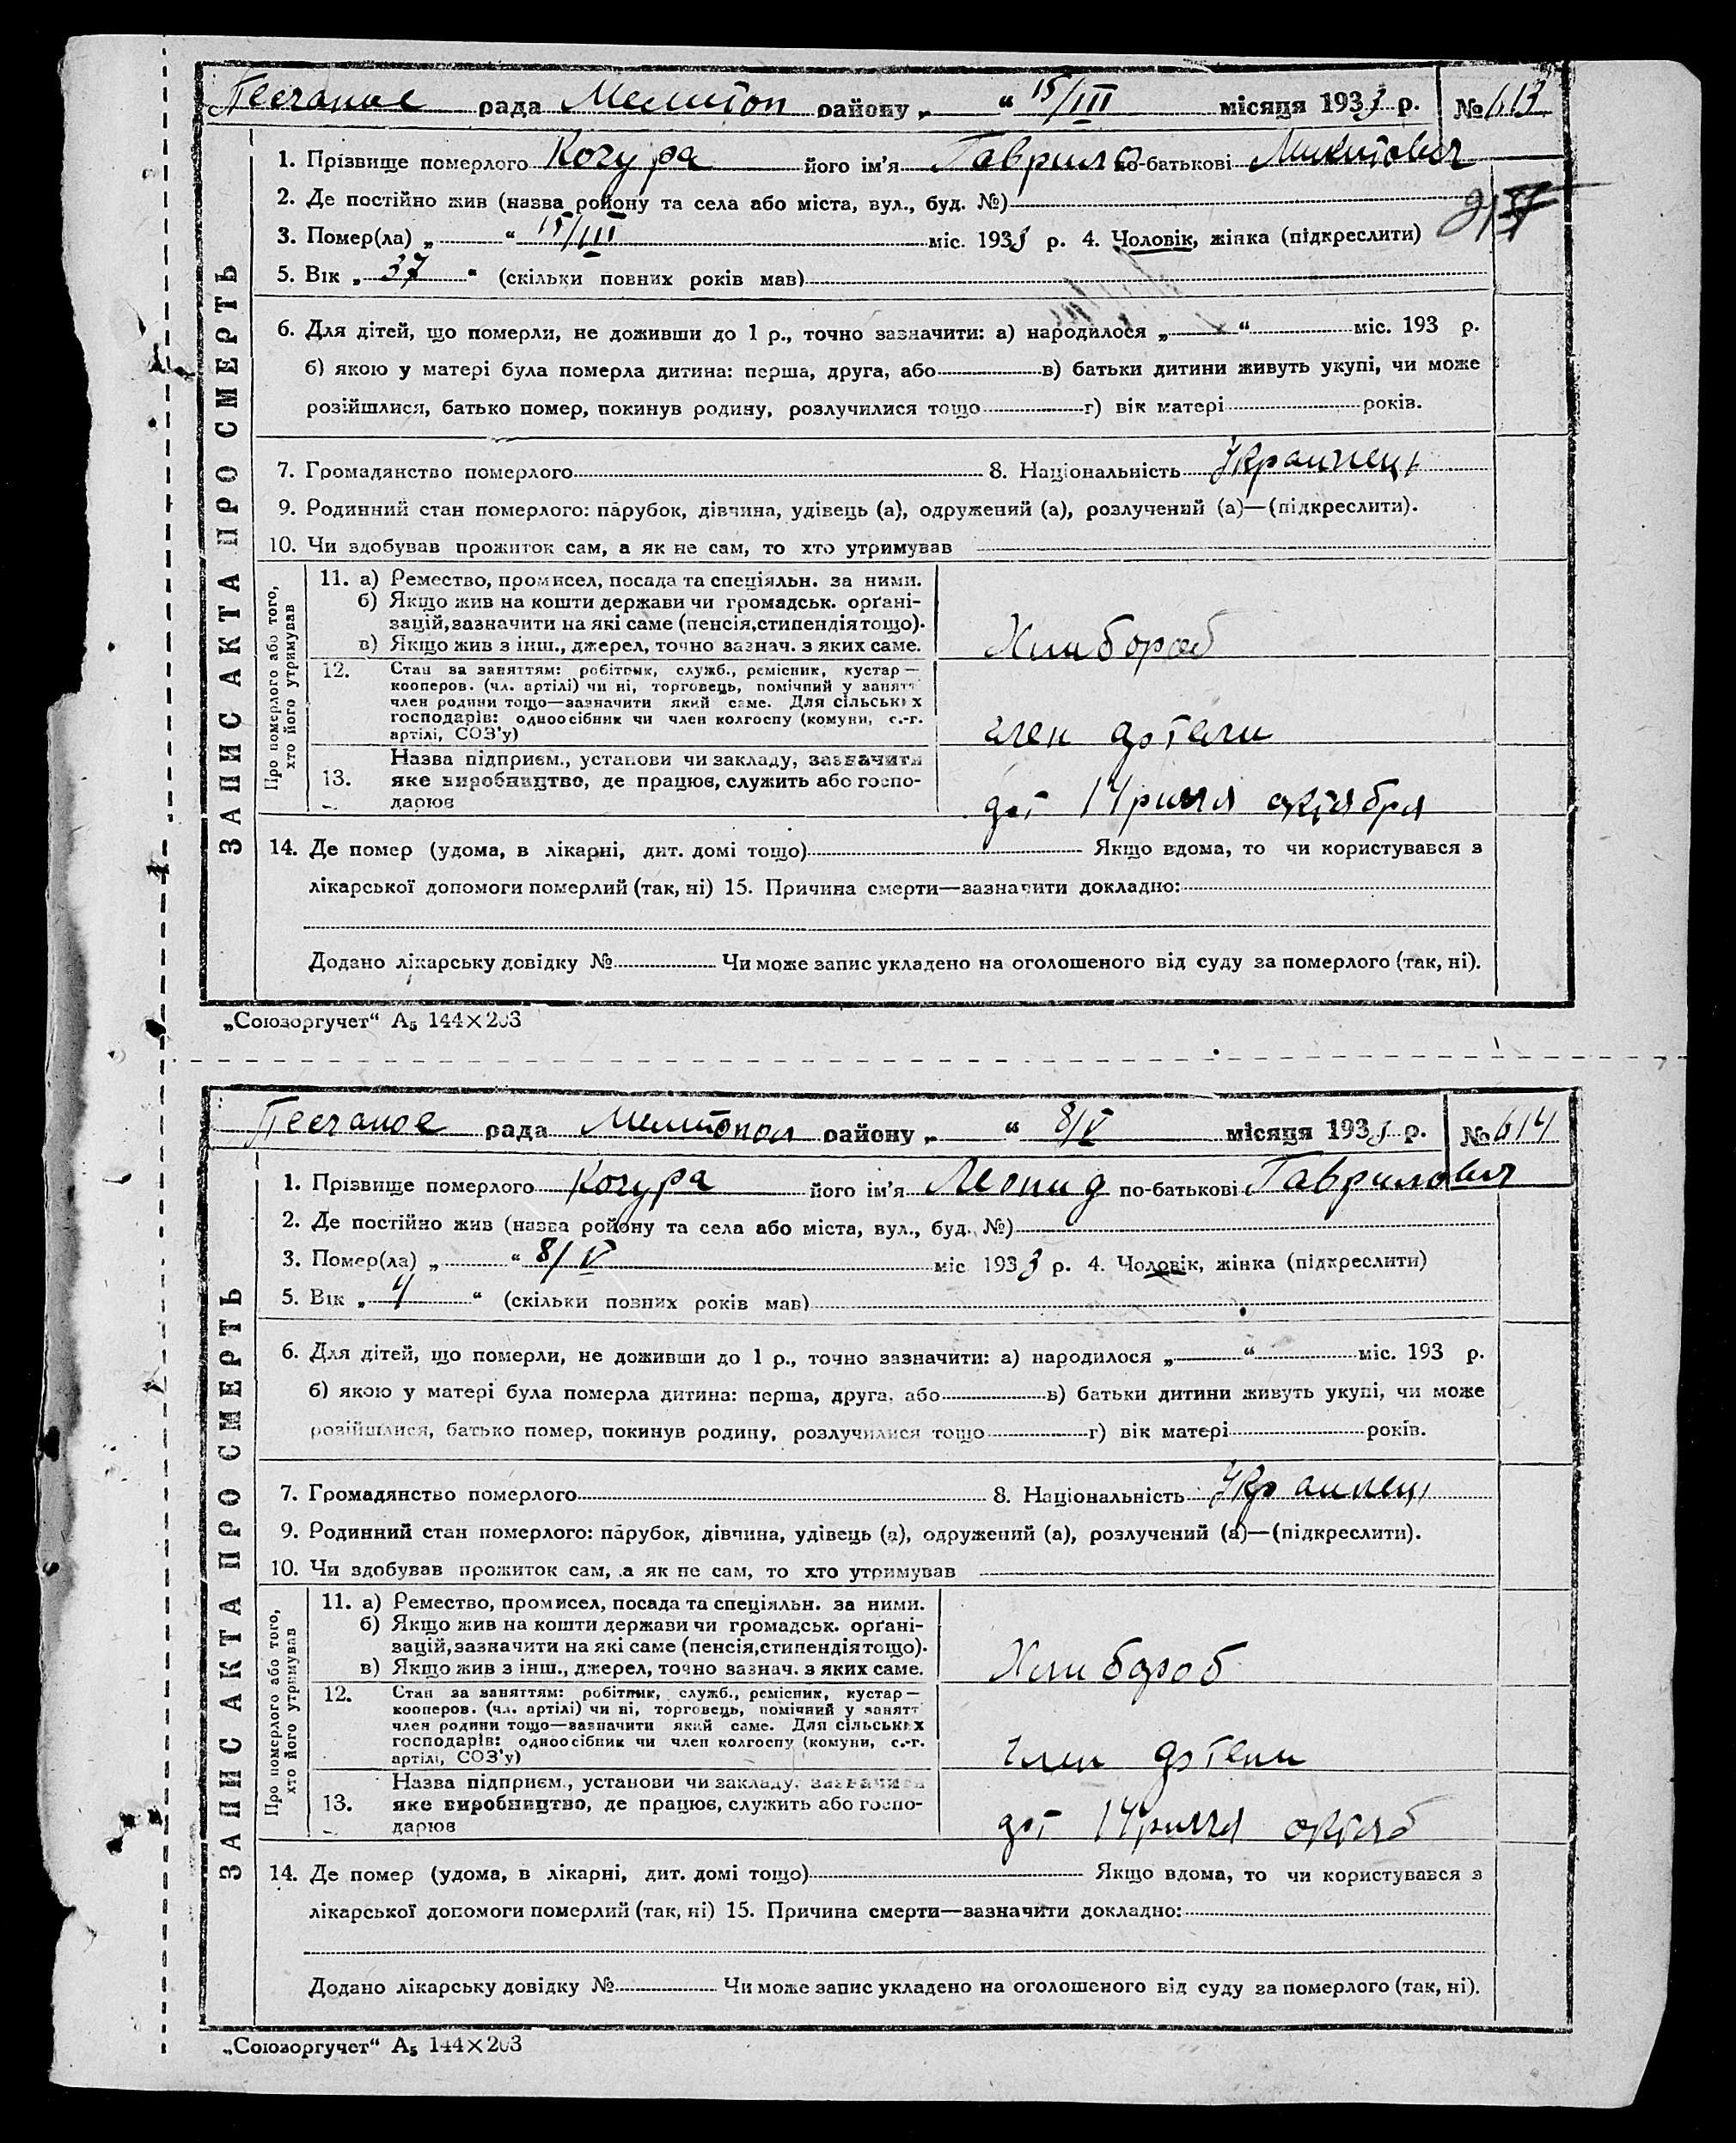 Песчаное рада Мелитоп району „ “ 15/III місяця 1933 р. № 613
1. Прізвище померлого Кочура його ім'я Гаврило по-батькові Микитович
2. Де постійно жив (назва району та села або міста, вул., буд. №)
3. Помер(ла) „ “ 15/III міс. 1933 р. 4. Чоловік, жінка (підкреслити)
5. Вік „ 37 “ (скільки повних років мав)
6. Для дітей, що померли, не доживши до 1 р., точно зазначити: а) народилося „ “ міс. 193 р.
б) якою у матері була померла дитина: перша, друга, або в) батьки дитини живуть укупі, чи може
розійшлися, батько помер, покинув родину, розлучилися тощо г) вік матері років.
7. Громадянство померлого 8. Національність Украинец
9. Родинний стан померлого: парубок, дівчина, удівець (а), одружений (а), розлучений (а)—(підкреслити).
10. Чи здобував прожиток сам, а як не сам, то хто утримував
ЗАПИС АКТА ПРО СМЕРТЬ
Про померлого або того, хто його утримував
11. а) Ремество, промисел, посада та спеціяльн. за ними.
б) Якщо жив на кошти держави чи громадськ. орґані-
зацій, зазначити на які саме (пенсія, стипендія тощо).
в) Якщо жив з інш., джерел, точно зазнач. з яких саме. Хлибороб
12. Стан за заняттям: робітник, служб., ремісник, кустар—
кооперов. (чл. артілі) чи ні, торговець, помічний у занятт
член родини тощо—зазначити який саме. Для сільських
господарів: одноосібник чи член колгоспу (комуни, с.-г.
артілі, СОЗ'у) член артели
Назва підприєм., установи чи закладу, зазначити
13. яке виробництво, де працює, служить або госпо-
дарює 14 риччя октября
14. Де помер (удома, в лікарні, дит. домі тощо) Якщо вдома, то чи користувався з
лікарської допомоги померлий (так, ні) 15. Причина смерти—зазначити докладно:
Додано лікарську довідку № Чи може запис укладено на оголошеного від суду за померлого (так, ні).
„Союзоргучет“ А5 144×203
Песчаное рада Мелитопол району „ “ 8/V місяця 1933 р. № 614
1. Прізвище померлого Кочура його ім'я Леонид по-батькові Гаврилович
2. Де постійно жив (назва району та села або міста, вул., буд. №)
3. Помер(ла) „ “ 8/V міс 1933 р. 4. Чоловік, жінка (підкреслити)
5. Вік „ 4 “ (скільки повних років мав)
6. Для дітей, що померли, не доживши до 1 р., точно зазначити: а) народилося „ “ міс. 193 р.
б) якою у матері була померла дитина: перша, друга, або в) батьки дитини живуть укупі, чи може
розійшлися, батько помер, покинув родину, розлучилися тощо г) вік матері років.
7. Громадянство померлого 8. Національність Украинец
9. Родинний стан померлого: парубок, дівчина, удівець (а), одружений (а), розлучений (а)—(підкреслити).
10. Чи здобував прожиток сам, а як не сам, то хто утримував
ЗАПИС АКТА ПРО СМЕРТЬ
Про померлого або того, хто його утримував
11. а) Ремество, промисел, посада та спеціяльн. за ними.
б) Якщо жив на кошти держави чи громадськ. орґані-
зацій, зазначити на які саме (пенсія, стипендія тощо).
в) Якщо жив з інш., джерел, точно зазнач. з яких саме. Хлибороб
12. Стан за заняттям: робітник, служб., ремісник, кустар—
кооперов. (чл. артілі) чи ні, торговець, помічний у занятт
член родини тощо—зазначити який саме. Для сільських
господарів: одноосібник чи член колгоспу (комуни, с.-г.
артілі, СОЗ'у) член артели
Назва підприєм., установи чи закладу, зазначити
13. яке виробництво, де працює, служить або госпо-
дарює 14 риччя октяб
14. Де помер (удома, в лікарні, дит. домі тощо) Якщо вдома, то чи користувався з
лікарської допомоги померлий (так, ні) 15. Причина смерти—зазначити докладно:
Додано лікарську довідку № Чи може запис укладено на оголошеного від суду за померлого (так, ні).
„Союзоргучет“ А5 144×203